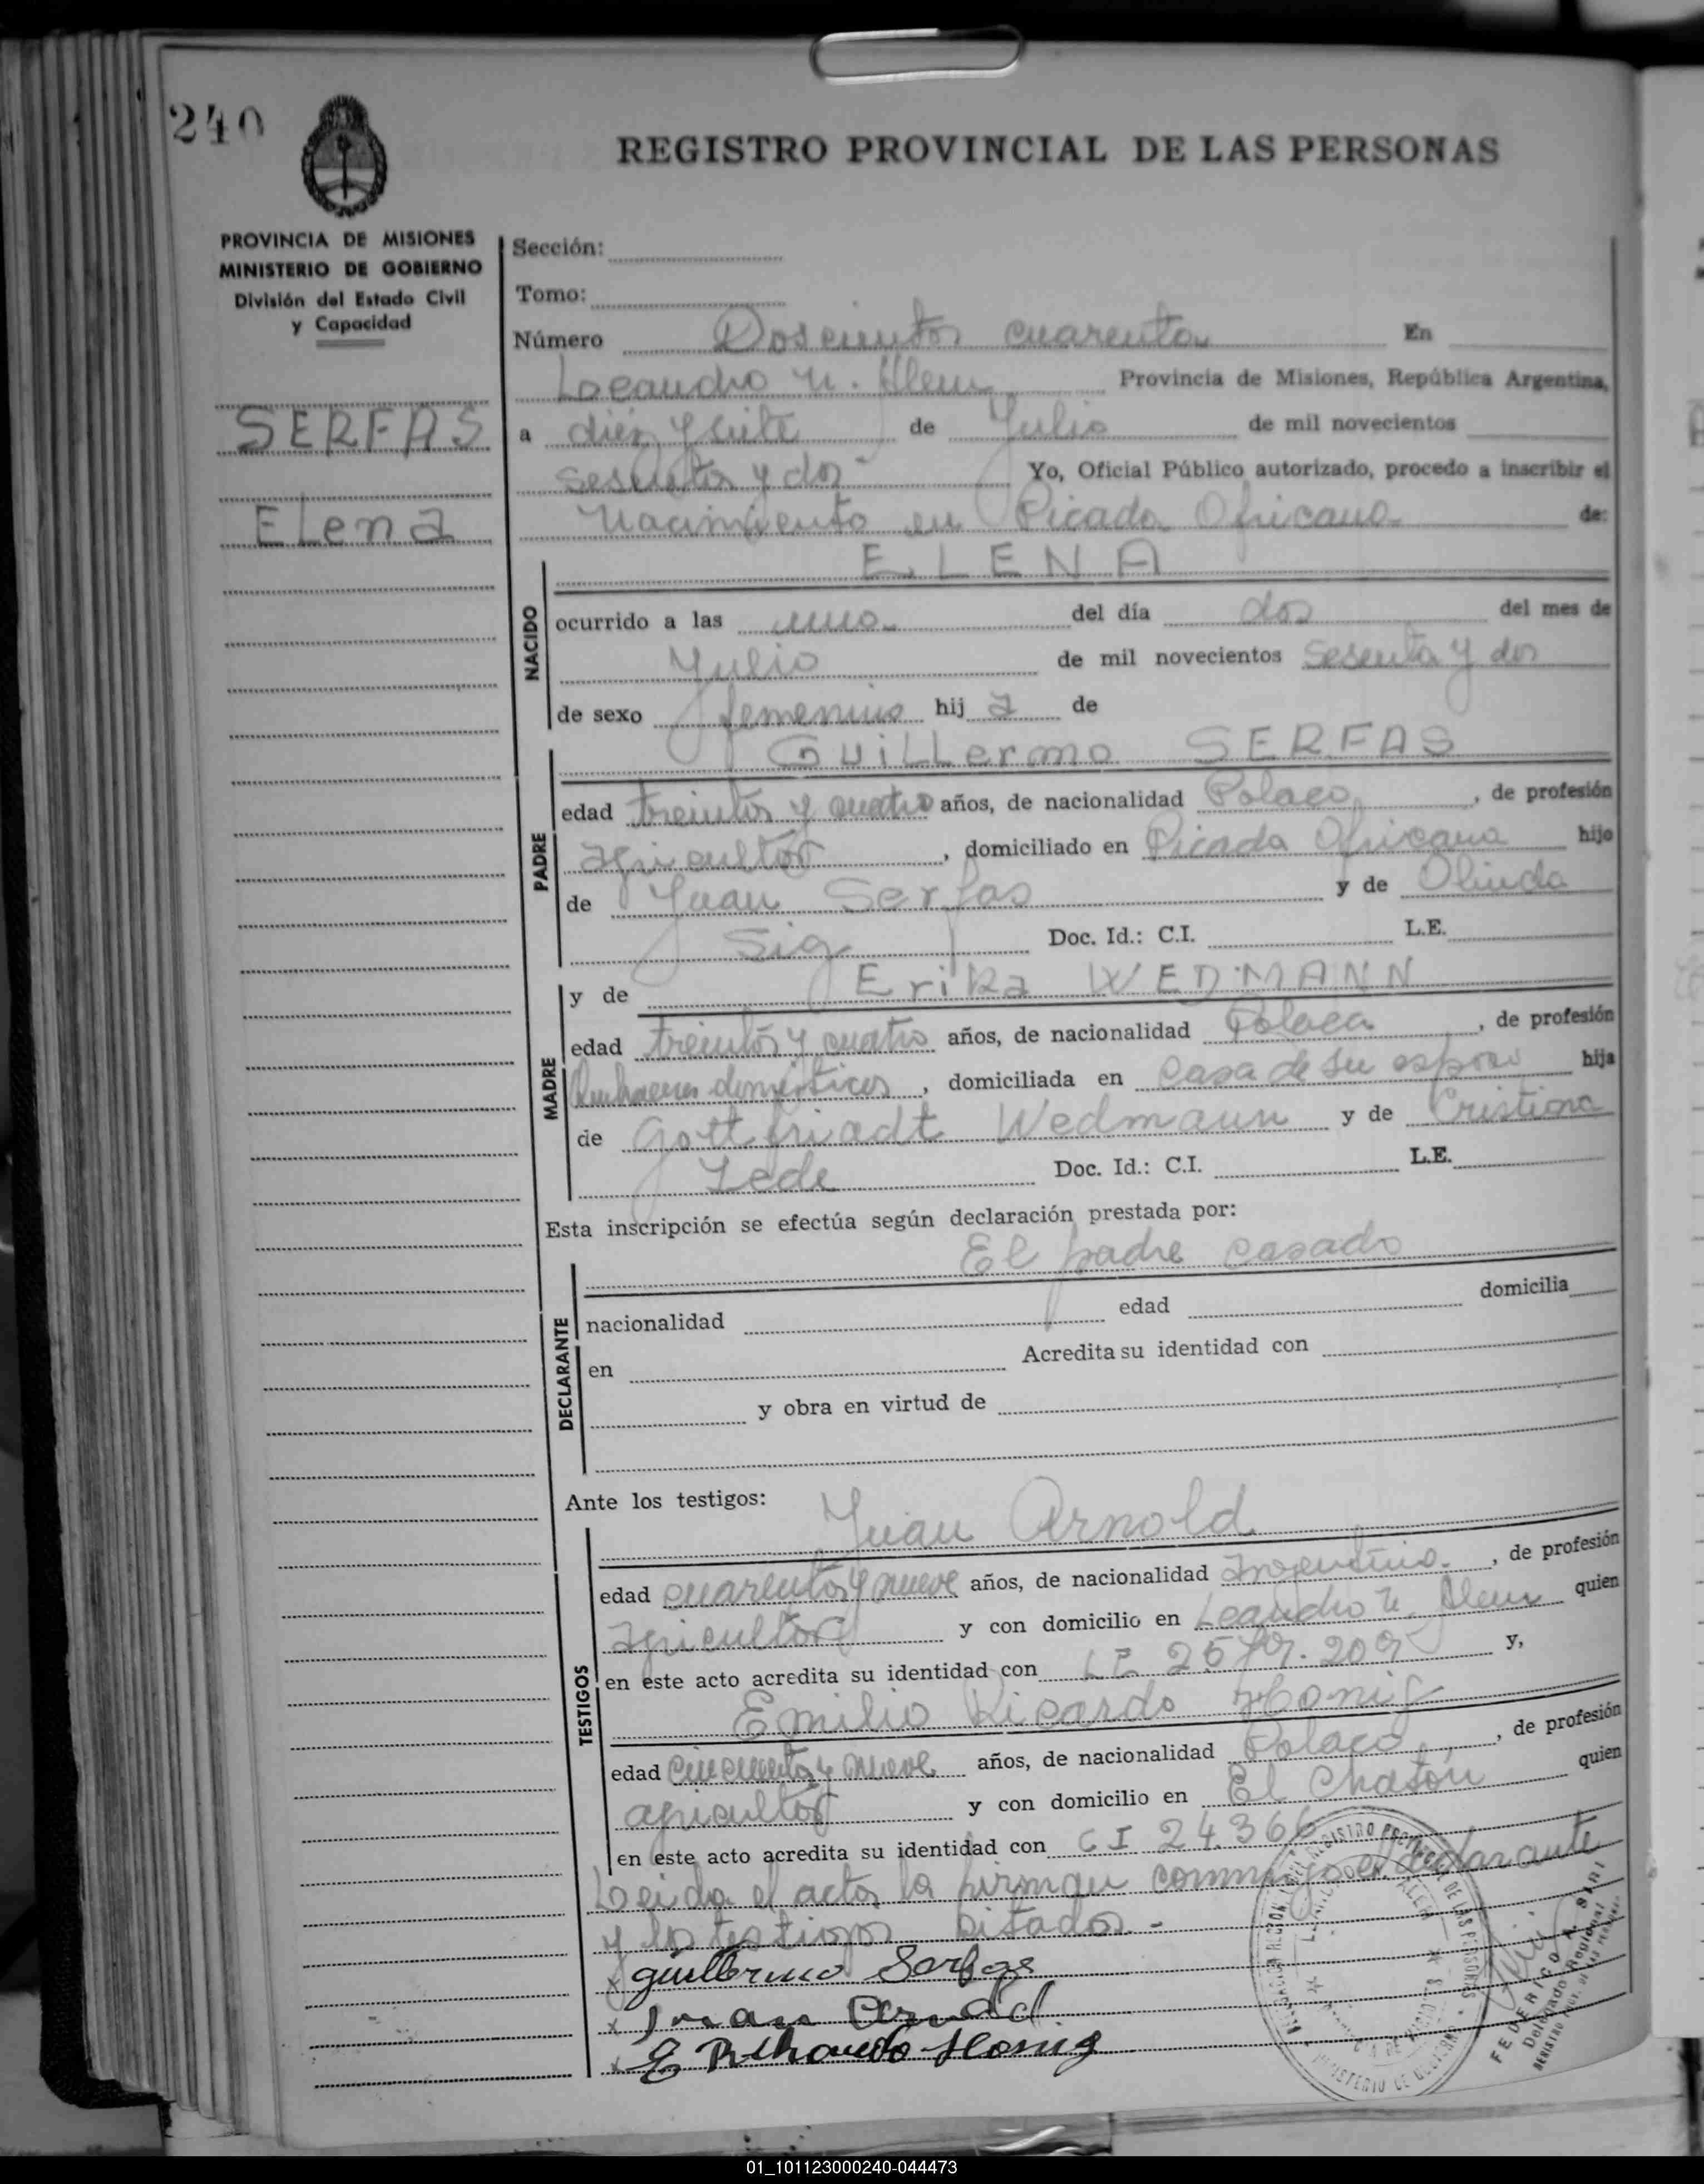 240
REGISTRO PROVINCIAL DE LAS PERSONAS
PROVINCIA DE MISIONES
MINISTERIO DE GOBIERNO
División del Estado Civil
y Capacidad
SERFAS
Elena
Sección:
Tomo:
Número Doscientos cuarenta En
Leandro N. Alem Provincia de Misiones, República Argentina,
a diez y siete de Julio de mil novecientos
sesenta y dos Yo, Oficial Público autorizado, procedo a inscribir el
nacimiento en Picada Africana de:
ELENA
NACIDO
ocurrido a las una del día dos del mes de
Julio de mil novecientos sesenta y dos
de sexo femenino hij a de
Guillermo SERFAS
PADRE
edad treinta y cuatro años, de nacionalidad Polaco, de profesión
agricultor, domiciliado en Picada Africana hijo
de Juan Serfas y de Olinda
Sig Doc. Id.: C.I. L.E.
y de Erika WEDMANN
MADRE
edad treinta y cuatro años, de nacionalidad Polaca, de profesión
Quehaceres domésticos, domiciliada en casa de su esposo hija
de Gottfriadt Wedmann y de Cristiana
Lede Doc. Id.: C.I. L.E.
Esta inscripción se efectúa según declaración prestada por:
El padre casado
DECLARANTE
nacionalidad edad domicilia
en Acredita su identidad con
y obra en virtud de
Ante los testigos:
Juan Arnold
TESTIGOS
edad cuarenta y nueve años, de nacionalidad Argentino, de profesión
agricultor y con domicilio en Leandro N. Alem quien
en este acto acredita su identidad con LE y,
Emilio Ricardo Honig
edad cincuenta y nueve años, de nacionalidad Polaco, de profesión
agricultor y con domicilio en El Chatón quien
en este acto acredita su identidad con CI 24.366
Leida el acta la firman conmigo el declarante
y los testigos citados.-
x guillermo Serfas
x Juan Arnold
x E Honig
FEDERICO A.
Delegado Regional
01_101123000240-044473